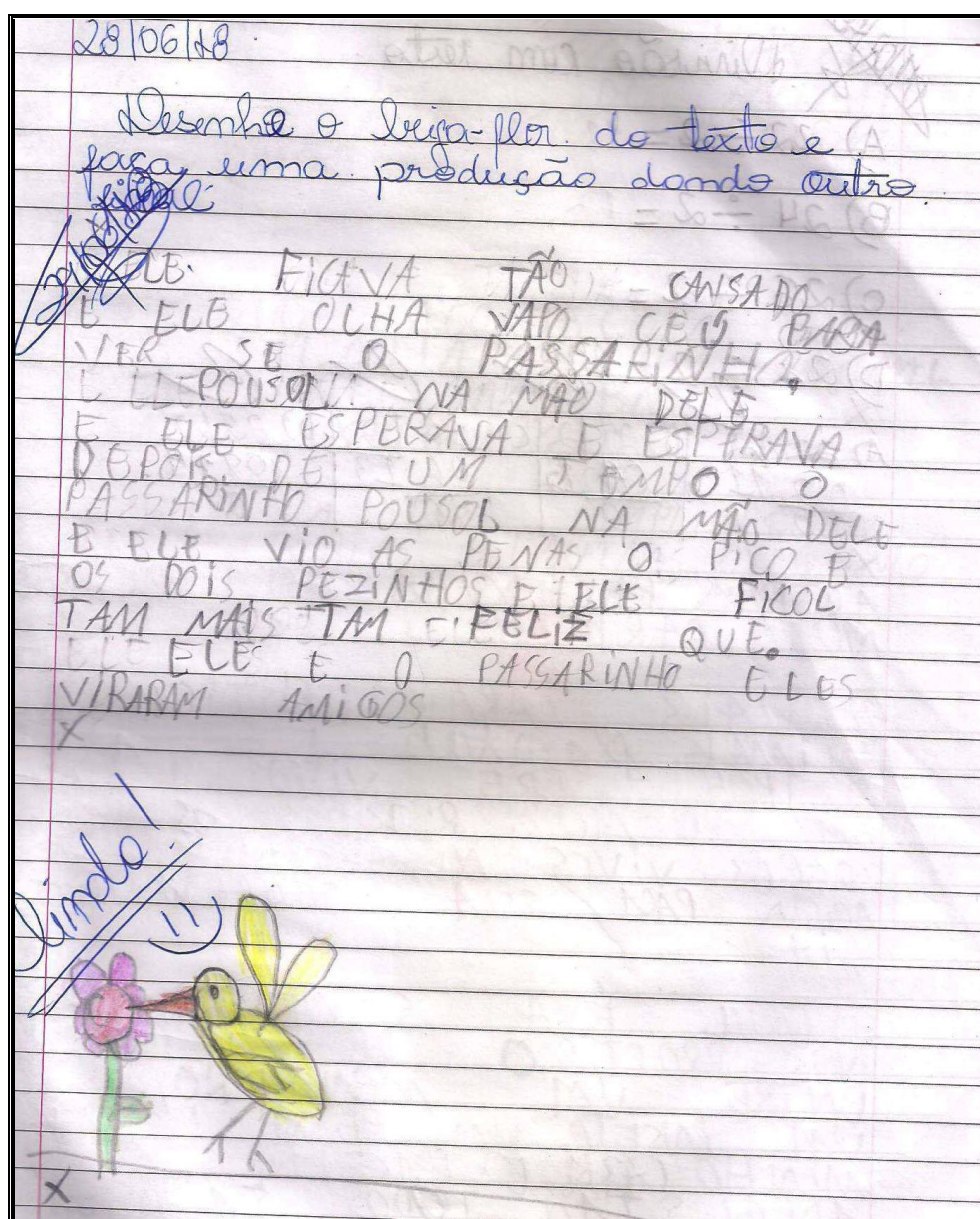 28/06/18
Desenhe o beija-flor do texto e
faça uma produção dando outro
final
ELE FICAVA TÃO CANSADO
E ELE OLHAVA PO CEU PARA
VER SE O PASSARINHO
POUSOU NA MÃO DELE
E ELE ESPERAVA E ESPERAVA
DEPOIS DE UM TEMPO O
PASSARINHO POUSOL NA MÃO DELE
E ELE VIO AS PENAS O PICO E
OS DOIS PEZINHOS E ELE FICOL
TAM MAIS TAM FELIZ QUE.
ELE ELE E O PASSARINHO ELES
VIRARAM AMIGOS
X
Lindo!
X